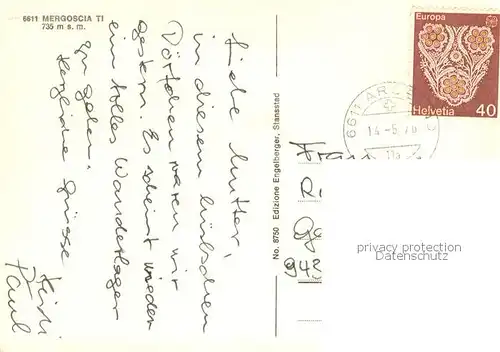 6611 MERGOSCIA TI
735 m s. m.
Liebe Mutter,
in diesem hübschen
Dörfchen waren wir
gestern. Es scheint wieder
ein tolles Wanderlager
zu geben.
Herzliche Grüsse
Heidi
Paul
No. 8750 Edizione Engelberger, Stansstad
Europa
Helvetia 40
6611
14.-5.76
Frau
R
Ge
943
privacy protection
Datenschutz